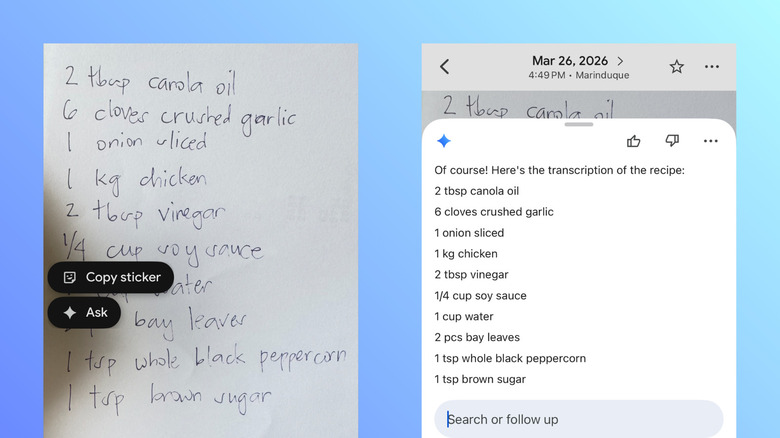 2 tbsp canola oil
6 cloves crushed garlic
1 onion sliced
1 kg chicken
2 tbsp vinegar
1/4 cup soy sauce
Copy sticker
water
Ask
bay leaves
1 tsp whole black peppercorn
1 tsp brown sugar
Mar 26, 2026 >
4:49 PM • Marinduque
2 tbsp canola oil
Of course! Here's the transcription of the recipe:
2 tbsp canola oil
6 cloves crushed garlic
1 onion sliced
1 kg chicken
2 tbsp vinegar
1/4 cup soy sauce
1 cup water
2 pcs bay leaves
1 tsp whole black peppercorn
1 tsp brown sugar
Search or follow up